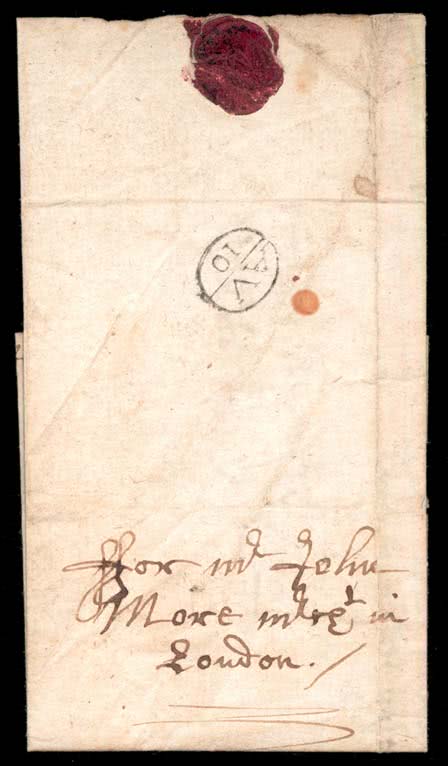 AV
10
ffor mr John
More mrcht in
London.